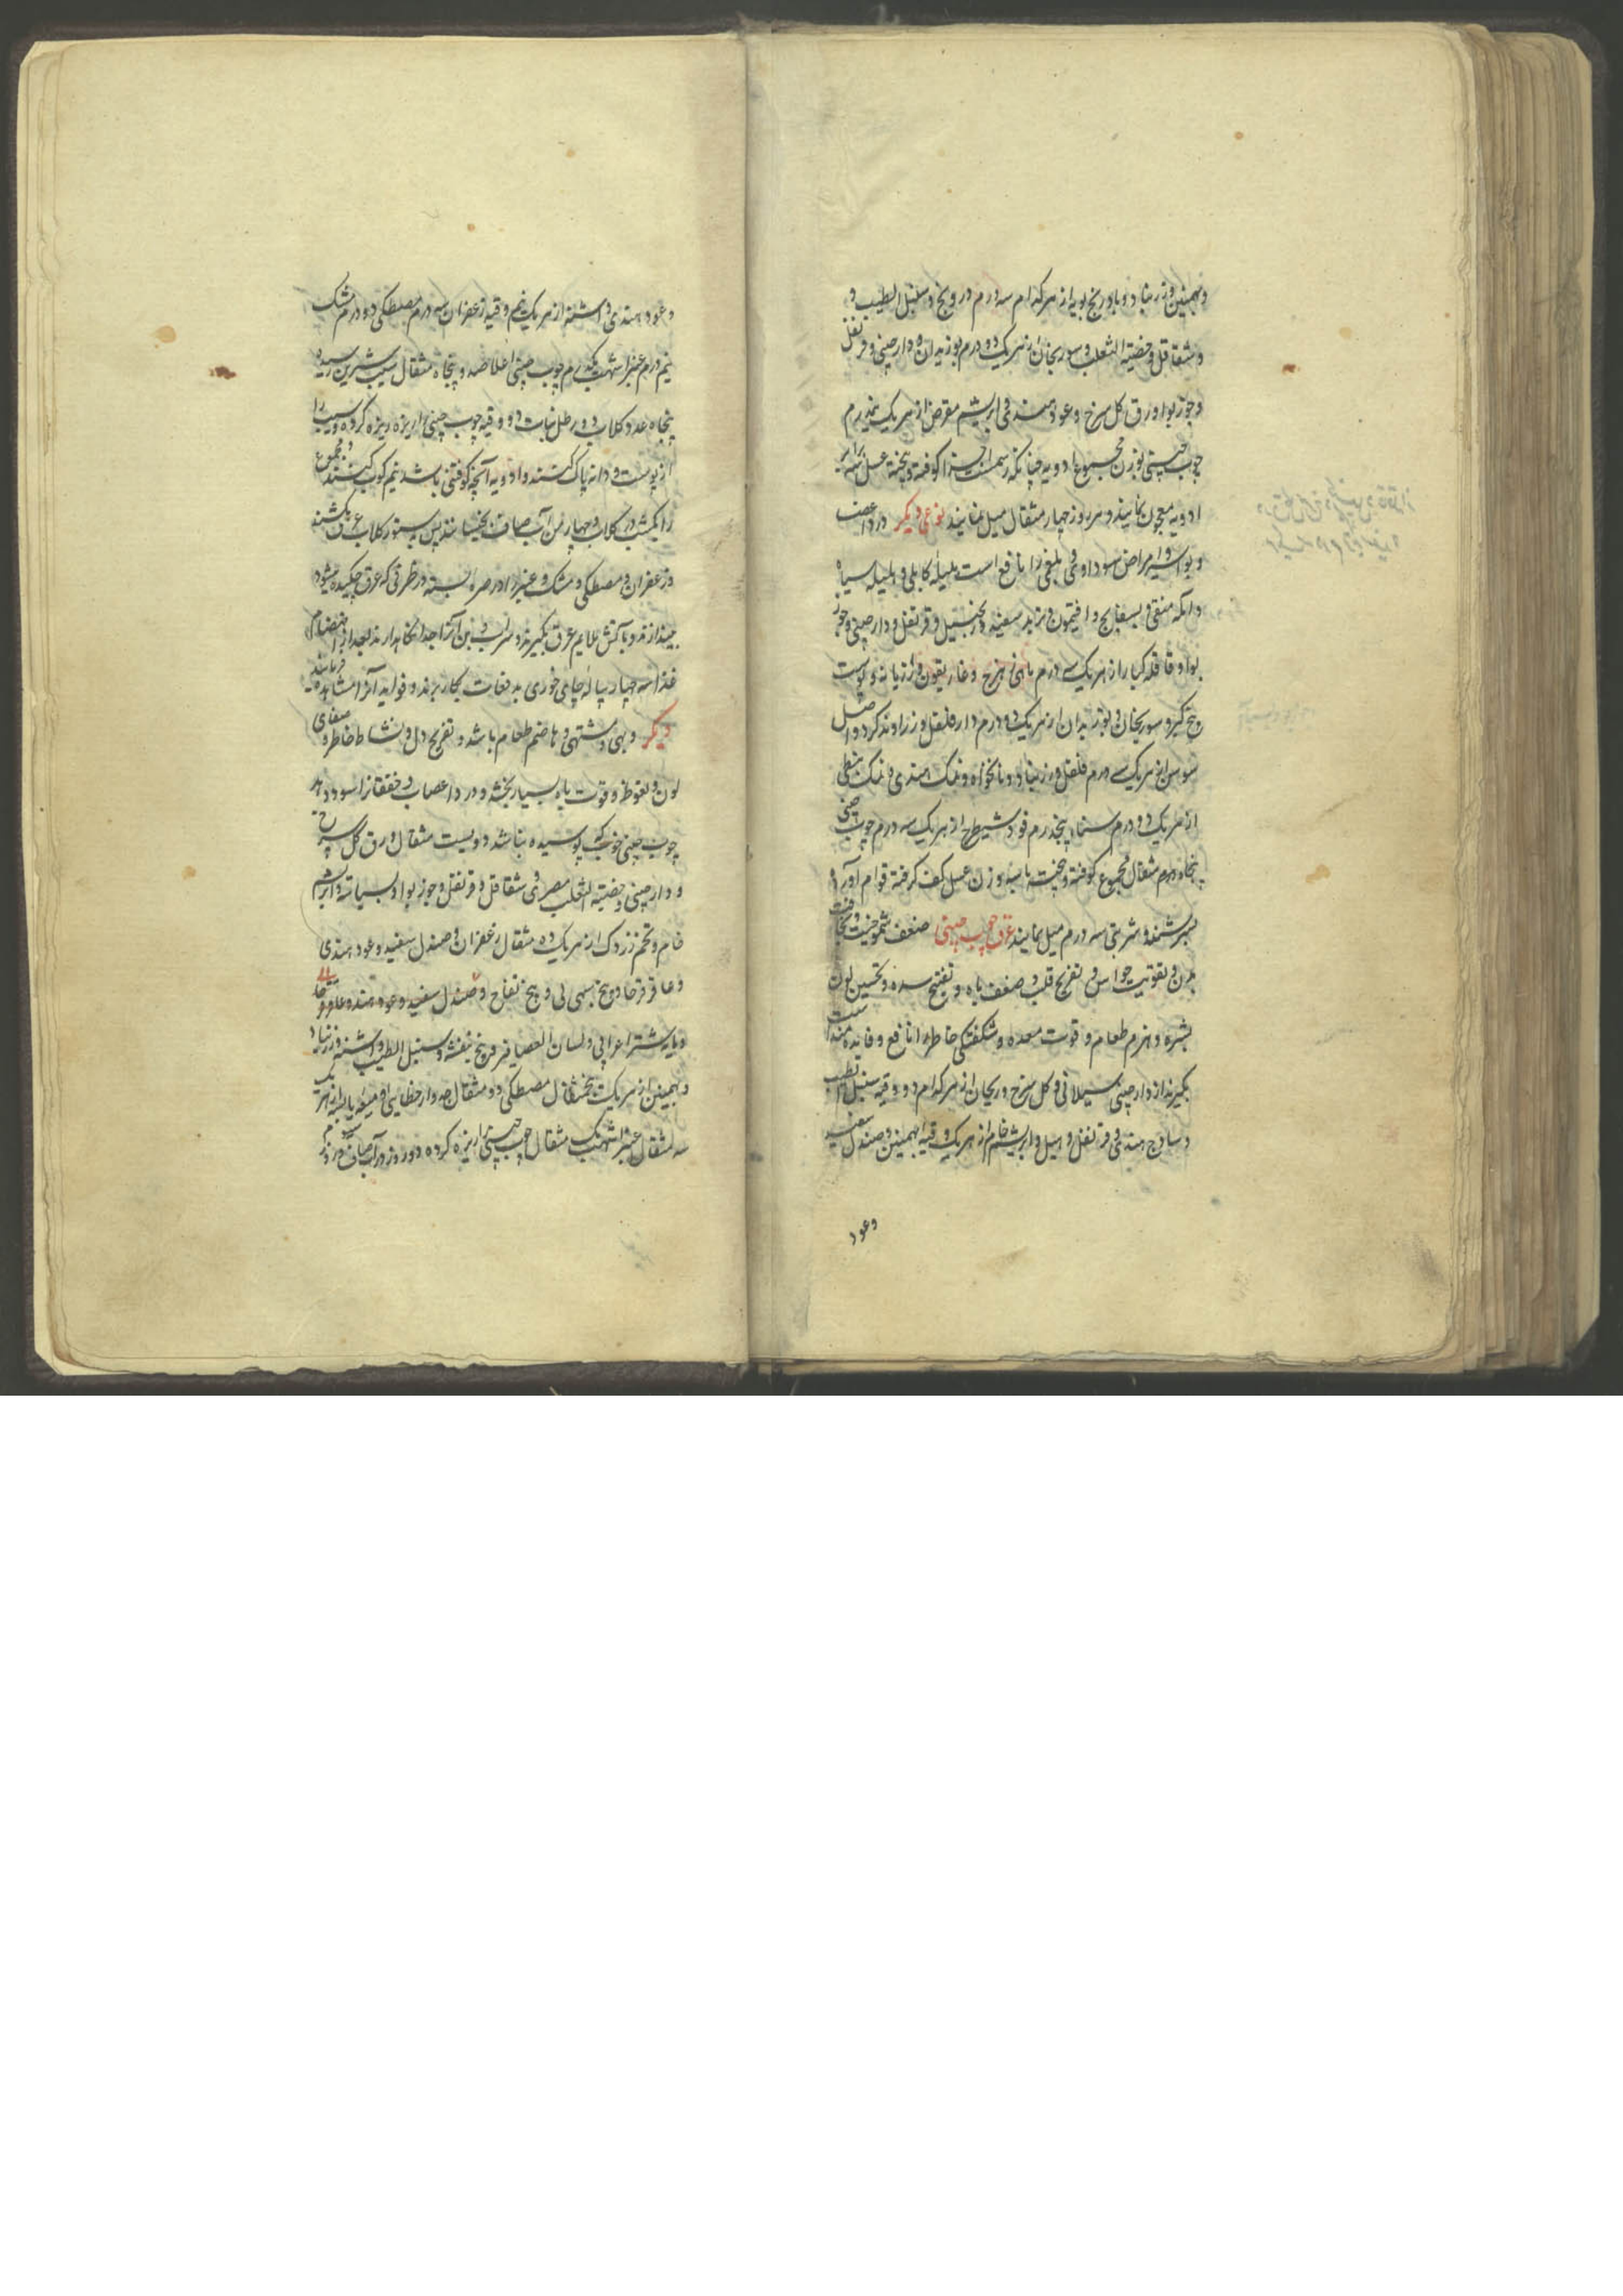 وبهمنین و زرنباد و بادرنج بویه از هر کدام سه درم درونج و سنبل الطیب و
و شقاقل و خصیته الثعلب و سورنجان از هر یک دو درم بوزیدان و دارچینی و قرنفل
و جوز بوا و ورق کل سرخ و عود هندی و ابریشم مقرض از هر یک نیمدرم
چوب چینی بوزن مجموع ادویه چنانکه رسمست اجزا کوفته و بیخته عسل سه برابر
ادویه معجون نمایند و هر روز چهار مثقال میل نمایند نوعی دیکر درد اعصاب
و بواسیر و امراض سوداوی و بلغمی را نافع است هلیله کابلی و هلیله سیاه
و امله منقی و بسفایج و افتیمون و تربد سفید و زنجبیل و قرنفل و دارچینی و جوز
بوا و قاقله کبار از هر یک سه درم ماهی زهرج و غاریقون و رازیانه و پوست
بیخ کبر و سورنجان و بوزیدان از هر یک دو درم دار فلفل و زراوند کرد و اصل
سوسن از هر یک سه درم فلفل و زرنباد و نانخواه و نمک هندی و نمک نبطی
از هر یک دو درم سناء پنجدرم فوه و شیطرج از هر یک سه درم چوب چینی
پنجاه درم مثقال مجموع کوفته و بیخته با سه وزن عسل کف کرفته قوام آورده
بسرشند و شربتی سه درم میل نمایند عرق چوب چینی ضعف
بدن و تقویت حواس و تفریح قلب و ضعف باه و تفتیح سده و تحسین لون
بشره و هزم طعام و قوت معده و شکفتکی خاطر را نافع و فایده مند است
بکیرند از دارچینی سیلانی و کل سرخ و ریحان از هر کدام دو وقیه سنبل الطیب
و ساذج هندی و قرنفل و هیل و ابریشم خام از هر یک وقیه بهمنین و صندل سفید
وعود
وعود هندی و اشنه از هر یک نیم وقیه زعفران سه درم مصطکی دو درم مشک
نیم درم عنبر اشهب یکدرم چوب چینی اعلا صد و پنجاه مثقال سیب شیرین رسیده
پنجاه عدد کلاب دو رطل نبات دو وقیه چوب چینی را ریزه ریزه کرده و سیب را
از پوست و دانه پاک کنند و ادویه آنچه کوفتنی باشد نیم کوب کنند و مجموع
را یکشب در کلاب و چهار من آب صاف بخیسانند پس بدستور کلاب عرق بکشند
و زعفران و مصطکی و مشک و عنبر را در صره بسته در ظرفی که عرق چکیده میشود
بیندازند و باتش ملایم عرق بکیرند و سر آب و بن آنرا جدا نکاهدارند بعد از انهضام
غذا سه چهار پیاله چای خوری بدفعات بکار برند و فواید آنرا مشاهده فرمایند
دیکر و بهی و مشتهی و هاضم طعام باشد و تفریح دل و نشاط خاطر و صفای
لون و نعوظ و قوت باه بسیار بخشد و درد اعصاب و خفقانرا سود دهد
چوب چینی خوب که پوسیده نباشد دویست مثقال ورق کل سرخ
و دارچینی و خصیته الثعلب مصری و شقاقل و قرنفل و جوز بوا و بسباسه و ابریشم
خام و تخم زردک از هر یک ده مثقال زعفران و صندل سفید و عود هندی
و عاقرقرحا و بیخ تفاح و صندل سفید و عود هند و عاقرقرحا
و مایه شتر اعرابی و لسان العصافیر و بیخ بنفشه و سنبل الطیب و اشنه و زرنباد
و بهمنین از هر یک پنجمثقال مصطکی دو مثقال جدوار خطایی و میعه یابسه از هر یک
سه مثقال عنبر اشهب یک مثقال چوب چینی را ریزه کرده دو روز در آب صاف